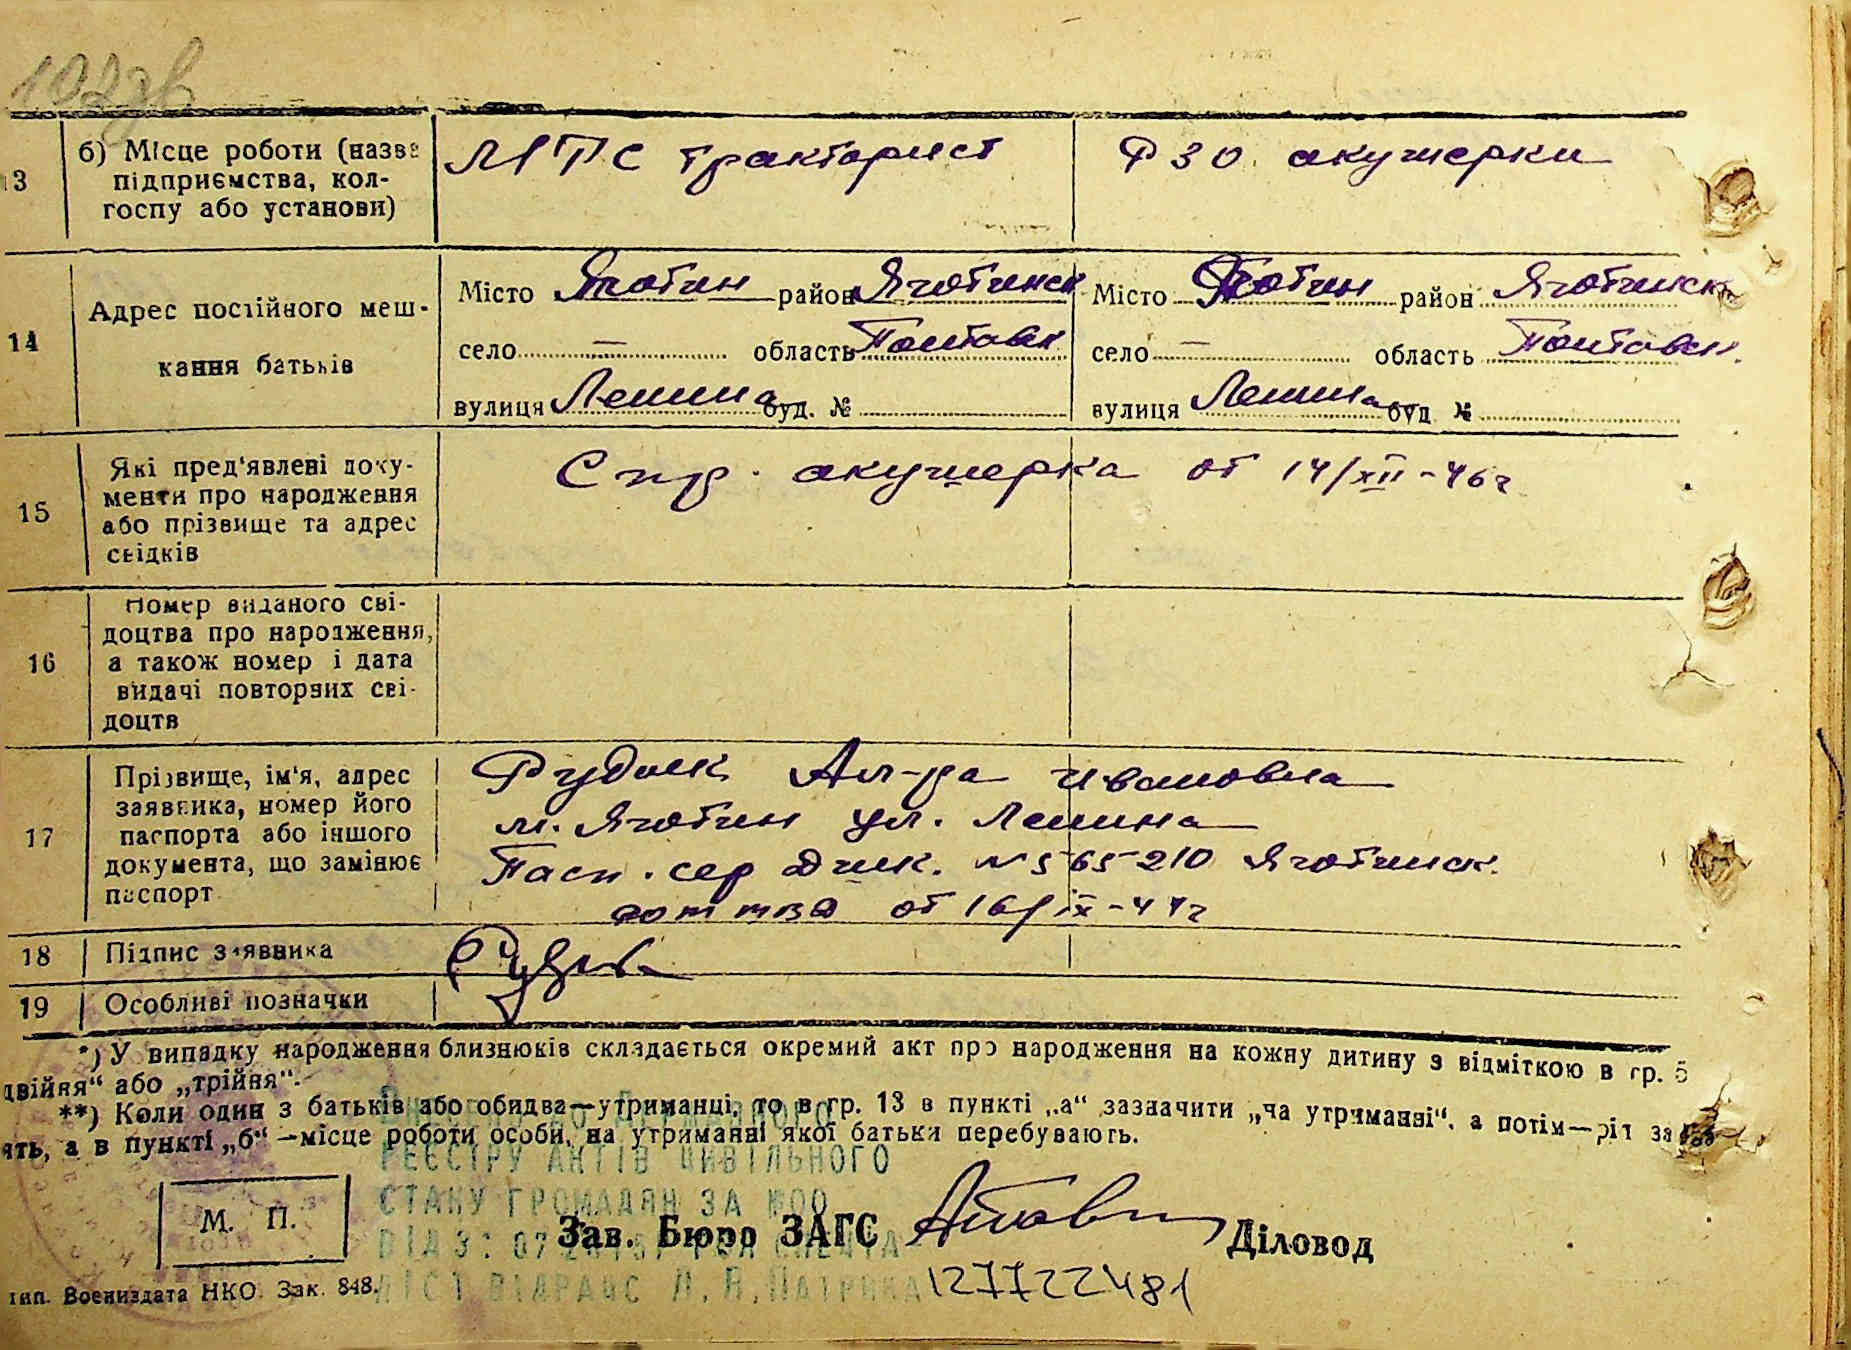 107зв
13 б) Місце роботи (назва підприємства, колгоспу або установи)
МТС тракторист
РЗО акушерки
14 Адрес постійного меш-
кання батьків
Місто Яготин район Яготинск
село — область Полтавск
вулиця Ленина буд. №
Місто Яготин район Яготинск
село — область Полтавск.
вулиця Ленина буд №
15 Які пред'явлені доку-
менти про народження
або прізвище та адрес
свідків
Спр. акушерка от 14/XII-46г
16 Номер виданого сві-
доцтва про народження,
а також номер і дата
видачі повторних сві-
доцтв
17 Прізвище, ім'я, адрес
заявника, номер його
паспорта або іншого
документа, що замінює
паспорт
Рудник Ал-ра Ивановна
м. Яготин ул. Ленина
Пасп. сер № 565210 Яготинск.
от 16/IX-47г
18 Підпис заявника
19 Особливі позначки
*) У випадку народження близнюків складається окремий акт про народження на кожну дитину з відміткою в гр. 5
двійня" або „трійня".
**) Коли один з батьків або обидва—утриманці, то в гр. 13 в пункті „а" зазначити „на утриманні", а потім—рід за
ять, а в пункті „б"—місце роботи особи, на утриманні якої батьки перебувають.
ВНЕСЕНО ДО ДЕРЖАВНОГО
РЕЄСТРУ АКТІВ ЦИВІЛЬНОГО
СТАНУ ГРОМАДЯН ЗА №00
М. П.
Зав. Бюро ЗАГС
Діловод
127722481
тип. Воениздата НКО. Зак. 848.